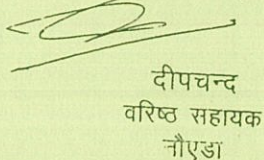 दीपचन्द
वरिष्ठ सहायक
नौएडा